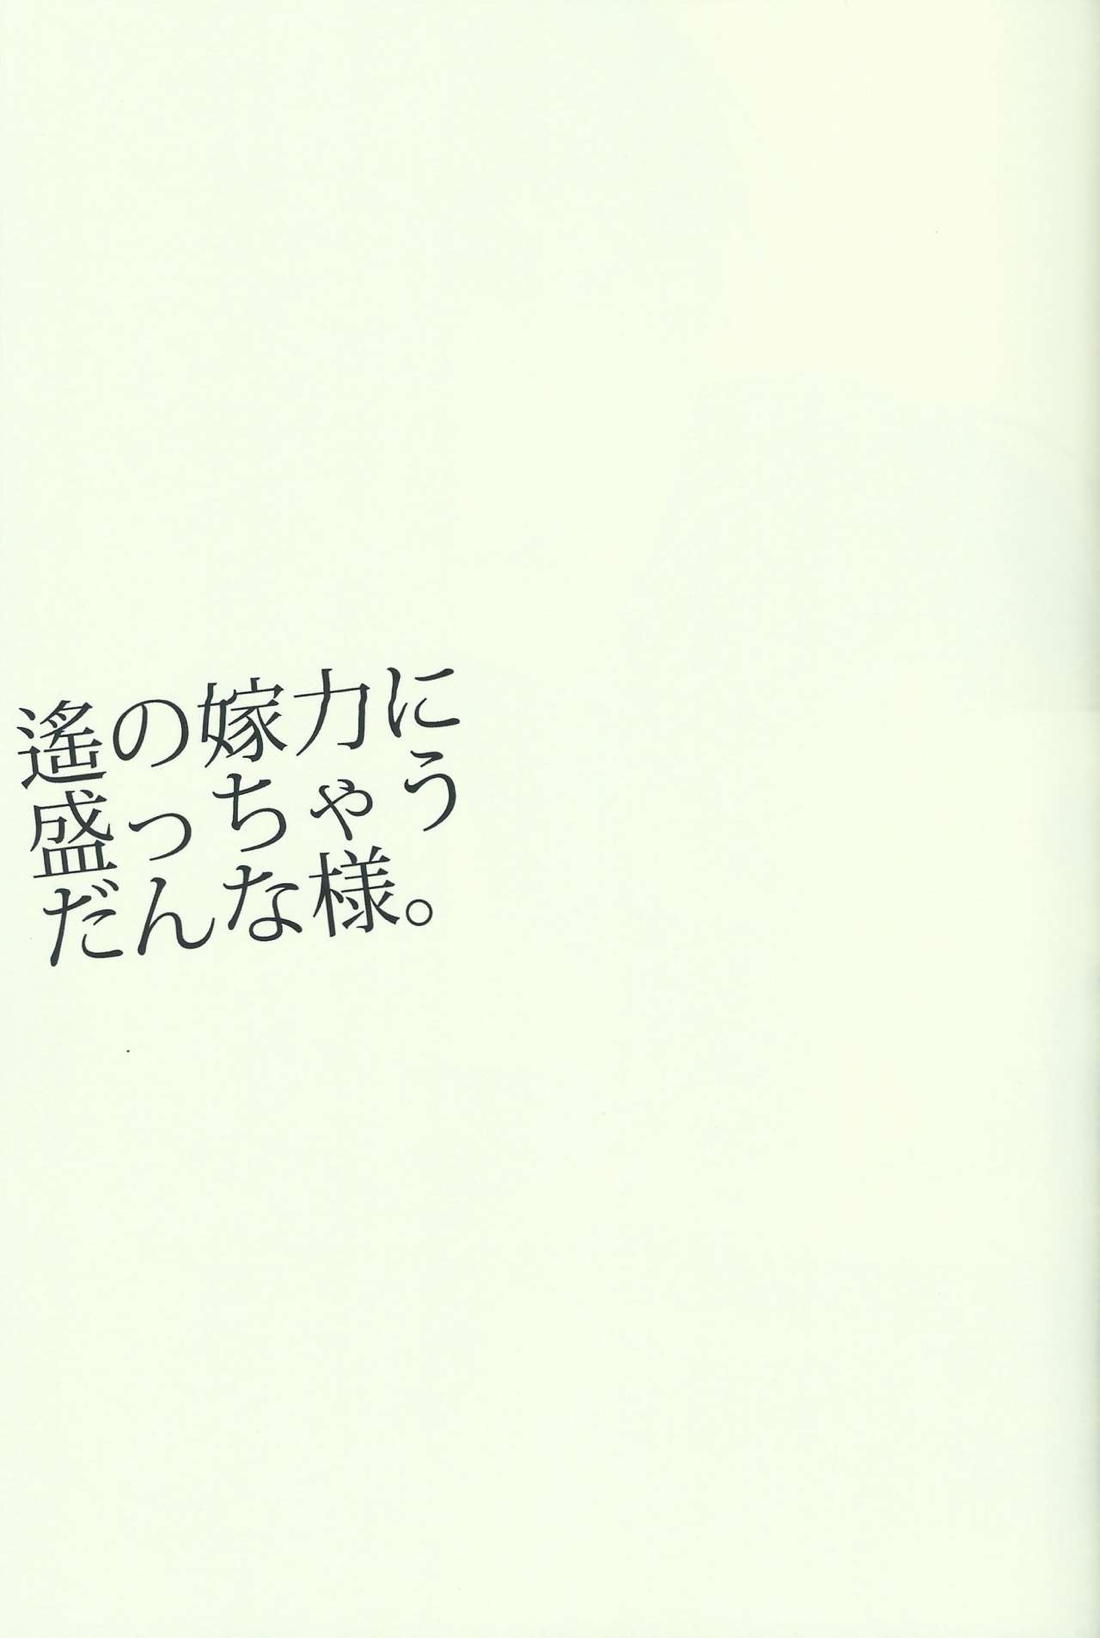 遙の嫁力に
盛っちゃう
だんな様。